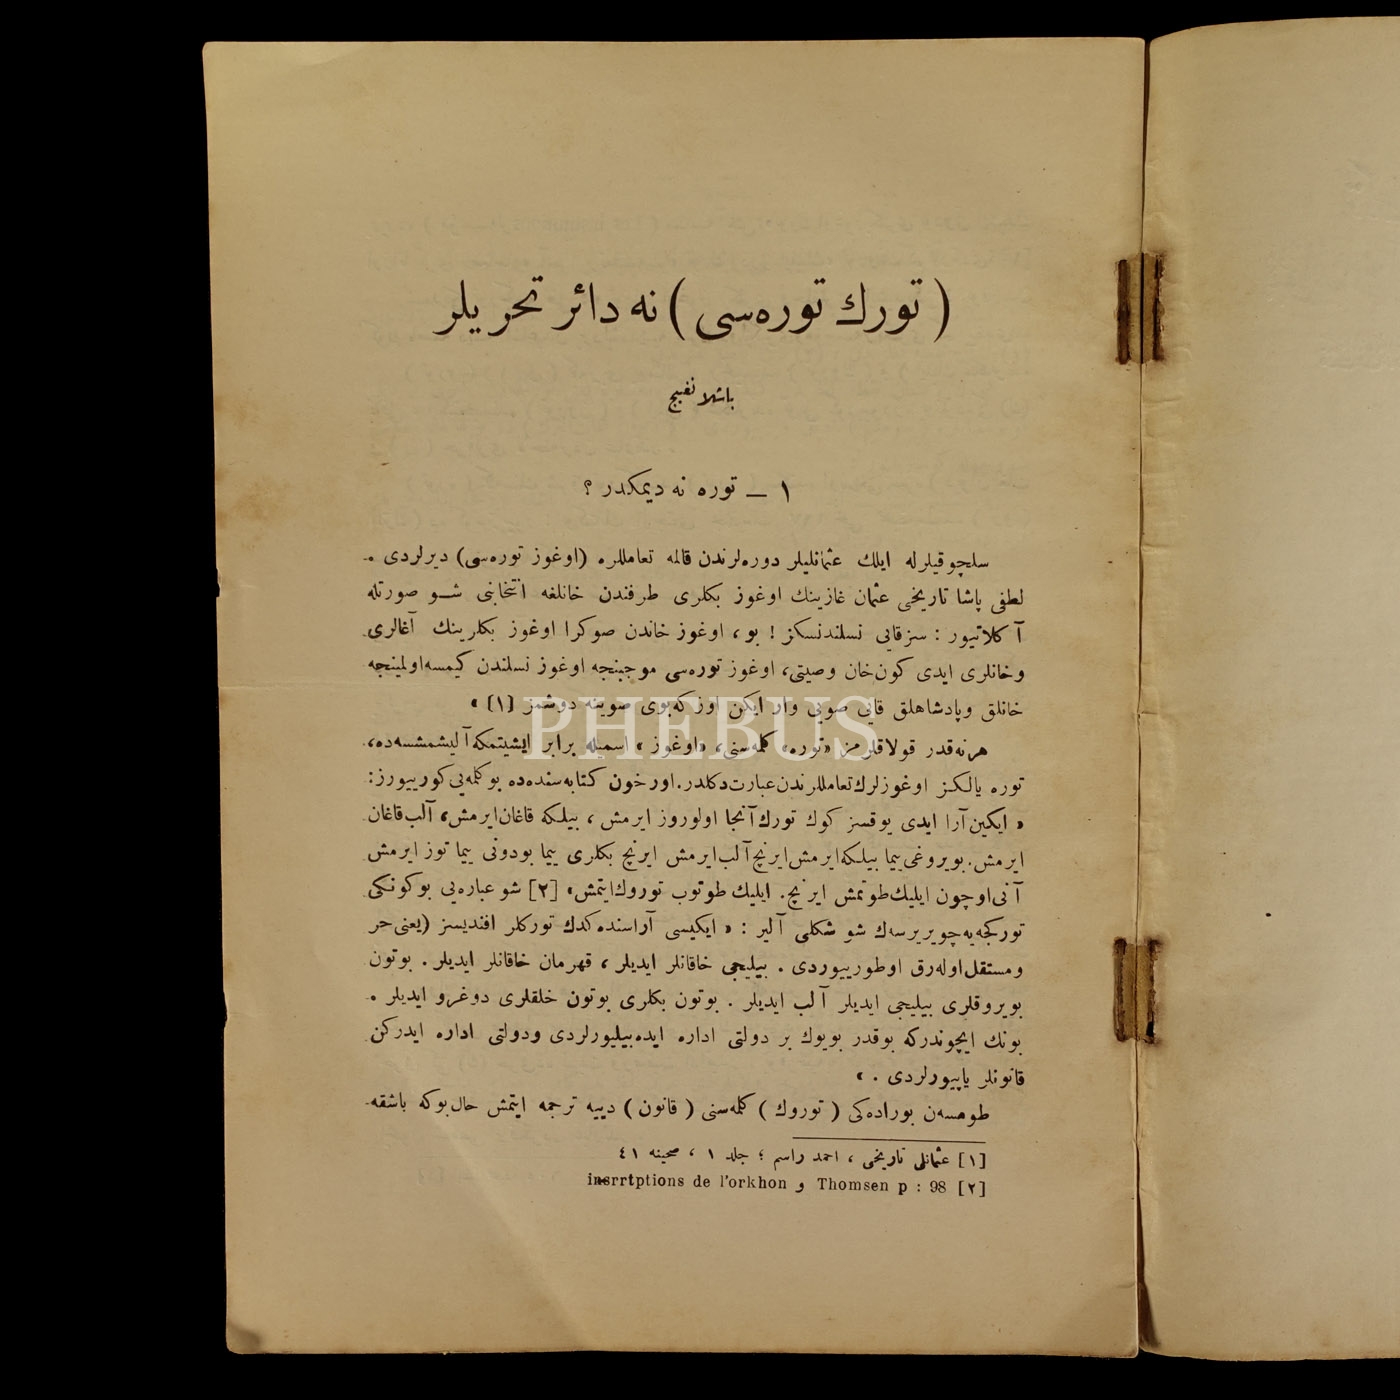 ( تورك توره‌سی ) نه دائر تحریلر
باشلانغیج
١ — توره نه دیمكدر ؟
سلچوقیلرله ایلك عثمانلیلر دوره‌لرندن قالمه تعاملاره (اوغوز توره‌سی) دیرلردی .
لطفی پاشا تاریخی عثمان غازینك اوغوز بكلری طرفندن خانلغه انتخابنی شو صورتله
آكلاتیور : سزقایی نسلندنسكز ! بو ، اوغوز خاندن صوكرا اوغوز بكلرینك آغالری
وخانلری ایدی كون‌خان وصیتی، اوغوز توره‌سی موجبنجه اوغوز نسلندن كیمسه‌اولمینجه
خانلق وپادشاهلق قایی صویی وار ایكن اوزكه‌بوی صوینه دوشمز [١] »
هرنه‌قدر قولاقلرمز «توره» كلمه‌سنی، «اوغوز» اسمیله برابر ایشیتمكه‌آلیشمشسه‌ده،
توره یالكز اوغوزلرك‌تعامللرندن‌عبارت‌دكلدر. اورخون كتابه‌سنده‌ده بوكلمه‌یی‌كورییورز:
« ایكین‌آرا ایدی یوقسز كوك تورك‌آنجا اولوروز ایرمش ، بیلكه قاغان‌ایرمش، آلب‌قاغان
ایرمش. بویروغی‌ییما بیلكه‌ایرمش‌ایرنچ‌آلب‌ایرمش ایرنچ بكلری ییما بودونی ییما توز ایرمش
آنی‌اوچون ایلیك‌طوتمش ایرنچ. ایلیك طوتوب توروك‌ایتمش» [٢] شو عباره‌یی بوكونكی
توركجه‌یه‌چویریرسه‌ك شو شكلی آلیر : « ایكیسی آراسنده كدك توركلر افندیسز (یعنی‌حر
ومستقل‌اوله‌رق اوطورییوردی . بیلیجی خاقانلر ایدیلر ، قهرمان خاقانلر ایدیلر . بوتون
بویروقلری بیلیجی ایدیلر آلب ایدیلر . بوتون بكلری بوتون خلقلری دوغرو ایدیلر .
بونك ایچوندركه بوقدر بویوك بر دولتی اداره ایده‌بیلیورلردی ودولتی اداره ایدركن
قانونلر یاپییورلردی . »
طومسه‌ن بوراده‌كی ( توروك ) كلمه‌سنی ( قانون ) دییه ترجمه ایتمش حال‌بوكه باشقه
[١] عثمانلی تاریخی ، احمد راسم ؛ جلد ١ ، صحیفه ٤١
[٢] Thomsen p : 98 و insrrtptions de l'orkhon
PHEBUS